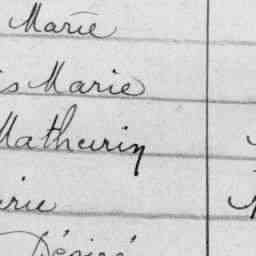 Marie
is Marie
Mathurin
rie
Désiré